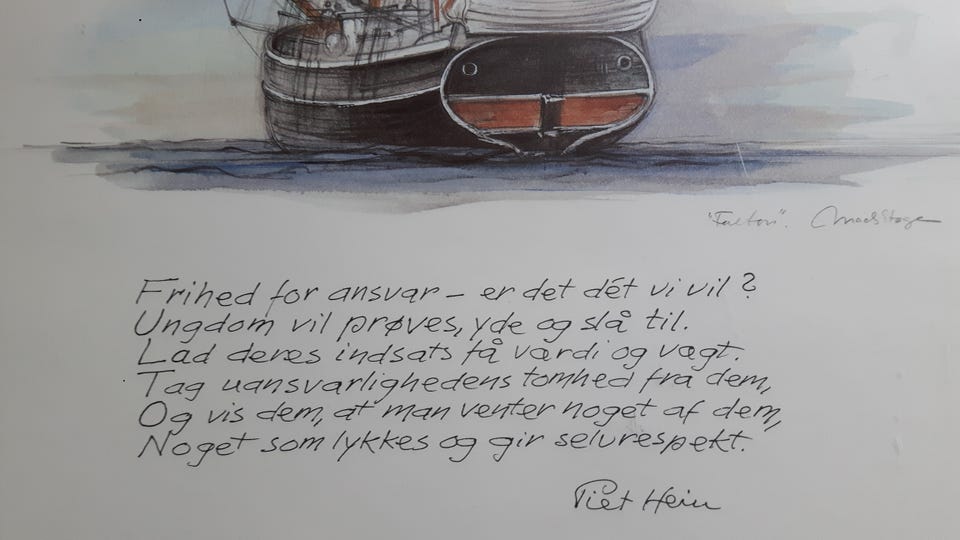 "Fulton". Mads Stage
Frihed for ansvar – er det dét vi vil?
Ungdom vil prøves, yde og slå til.
Lad deres indsats få værdi og vægt.
Tag uansvarlighedens tomhed fra dem,
Og vis dem, at man venter noget af dem,
Noget som lykkes og gir selvrespekt.
Piet Hein